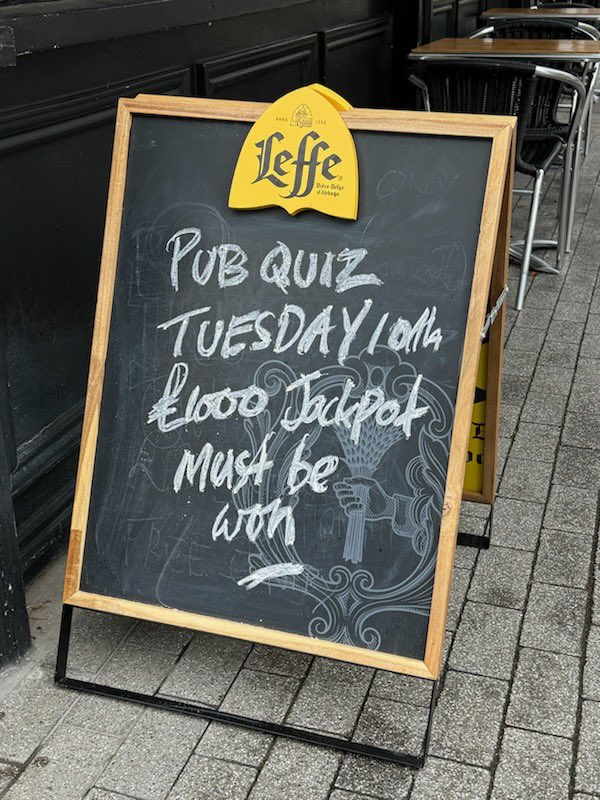 ANNO 1240
Leffe
Bière Belge
d'Abbaye
PUB QUIZ
TUESDAY 10th
£1000 Jackpot
Must be
won